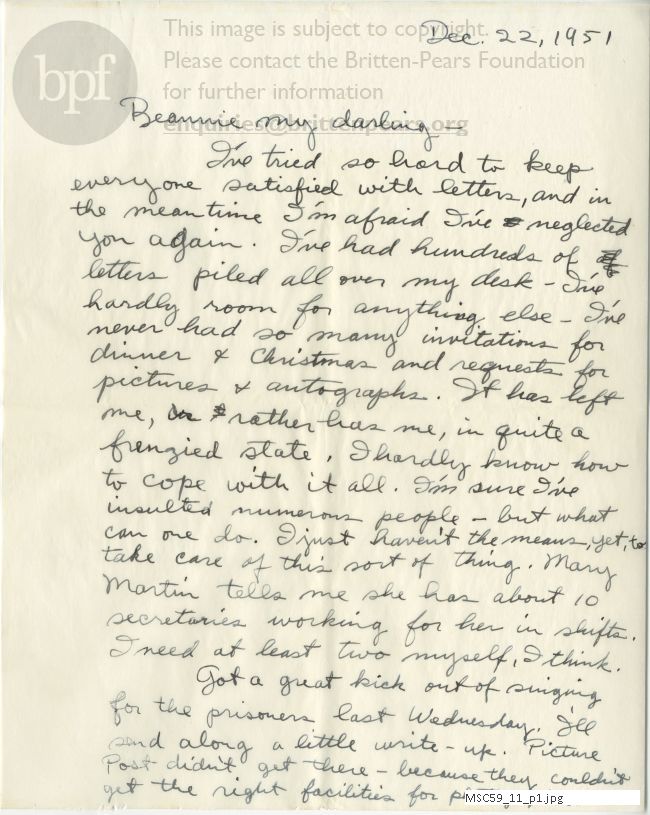 This image is subject to copyright.
Dec. 22, 1951
Please contact the Britten-Pears Foundation
for further information
bpf
enquiries@brittenpears.org
Beannie my darling —
I've tried so hard to keep
everyone satisfied with letters, and in
the meantime I'm afraid I've neglected
you again. I've had hundreds of
letters piled all over my desk - I've
hardly room for anything else - I've
never had so many invitations for
dinner & Christmas and requests for
pictures & autographs. It has left
me, rather has me, in quite a
frenzied state. I hardly know how
to cope with it all. I'm sure I've
insulted numerous people - but what
can one do. I just haven't the means, yet, to
take care of this sort of thing. Mary
Martin tells me she has about 10
secretaries working for her in shifts.
I need at least two myself, I think.
Got a great kick out of singing
for the prisoners last Wednesday. I'll
send along a little write-up. Picture
Post didn't get there - because they couldn't
get the right facilities for
MSC59_11_p1.jpg